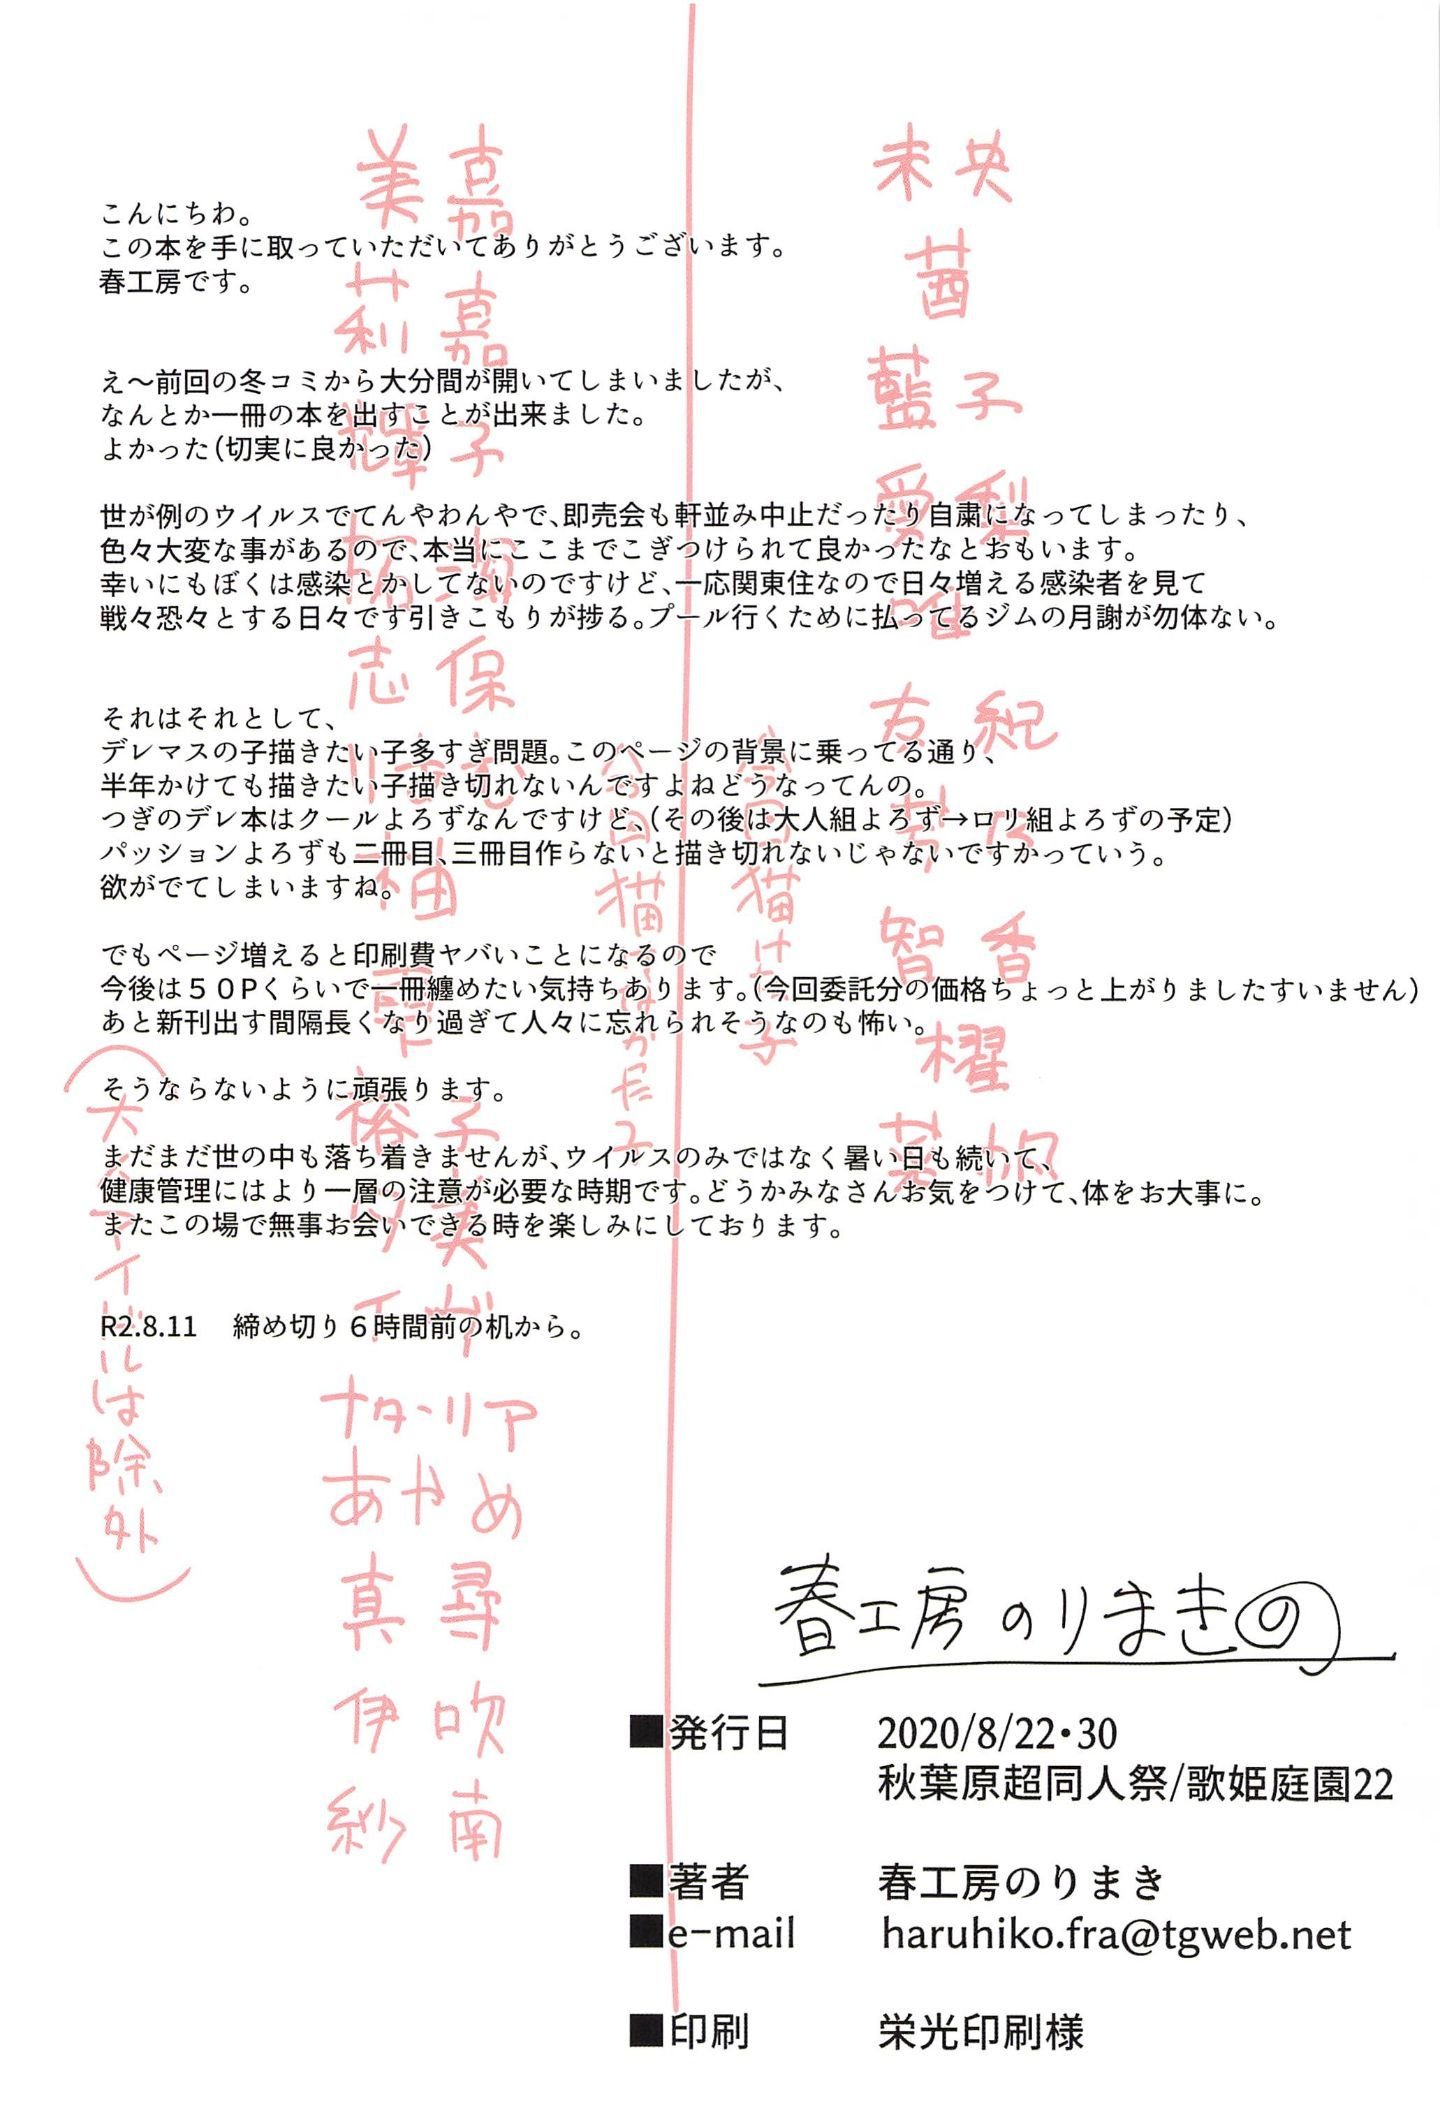 こんにちわ。
この本を手に取っていただいてありがとうございます。
春工房です。
え～前回の冬コミから大分間が開いてしまいましたが、
なんとか一冊の本を出すことが出来ました。
よかった（切実に良かった）
世が例のウイルスでてんやわんやで、即売会も軒並み中止だったり自粛になってしまったり、
色々大変な事があるので、本当にここまでこぎつけられて良かったなとおもいます。
幸いにもぼくは感染とかしてないのですけど、一応関東住なので日々増える感染者を見て
戦々恐々とする日々です引きこもりが捗る。プール行くために払ってるジムの月謝が勿体ない。
それはそれとして、
デレマスの子描きたい子多すぎ問題。このページの背景に乗ってる通り、
半年かけても描きたい子描き切れないんですよねどうなってんの。
つぎのデレ本はクールよろずなんですけど、（その後は大人組よろず→ロリ組よろずの予定）
パッションよろずも二冊目、三冊目作らないと描き切れないじゃないですかっていう。
欲がでてしまいますね。
でもページ増えると印刷費ヤバいことになるので
今後は５０Pくらいで一冊纏めたい気持ちあります。（今回委託分の価格ちょっと上がりましたすいません）
あと新刊出す間隔長くなり過ぎて人々に忘れられそうなのも怖い。
そうならないように頑張ります。
まだまだ世の中も落ち着きませんが、ウイルスのみではなく暑い日も続いて、
健康管理にはより一層の注意が必要な時期です。どうかみなさんお気をつけて、体をお大事に。
またこの場で無事お会いできる時を楽しみにしております。
R2.8.11　締め切り６時間前の机から。
未央
茜
藍子
愛梨
唯
友紀
芽乃
智香
櫂
菜帆
今回描けた子
今回描けなかった子
美嘉
莉嘉
輝子
拓海
志保
りあむ
紬
雫
裕子
夕美
イヴ
ナターリア
あやめ
真尋
伊吹
紗南
（大人アイドルは除外）
春工房のりまき
■発行日　2020/8/22・30
秋葉原超同人祭/歌姫庭園22
■著者　春工房のりまき
■e-mail　haruhiko.fra@tgweb.net
■印刷　栄光印刷様